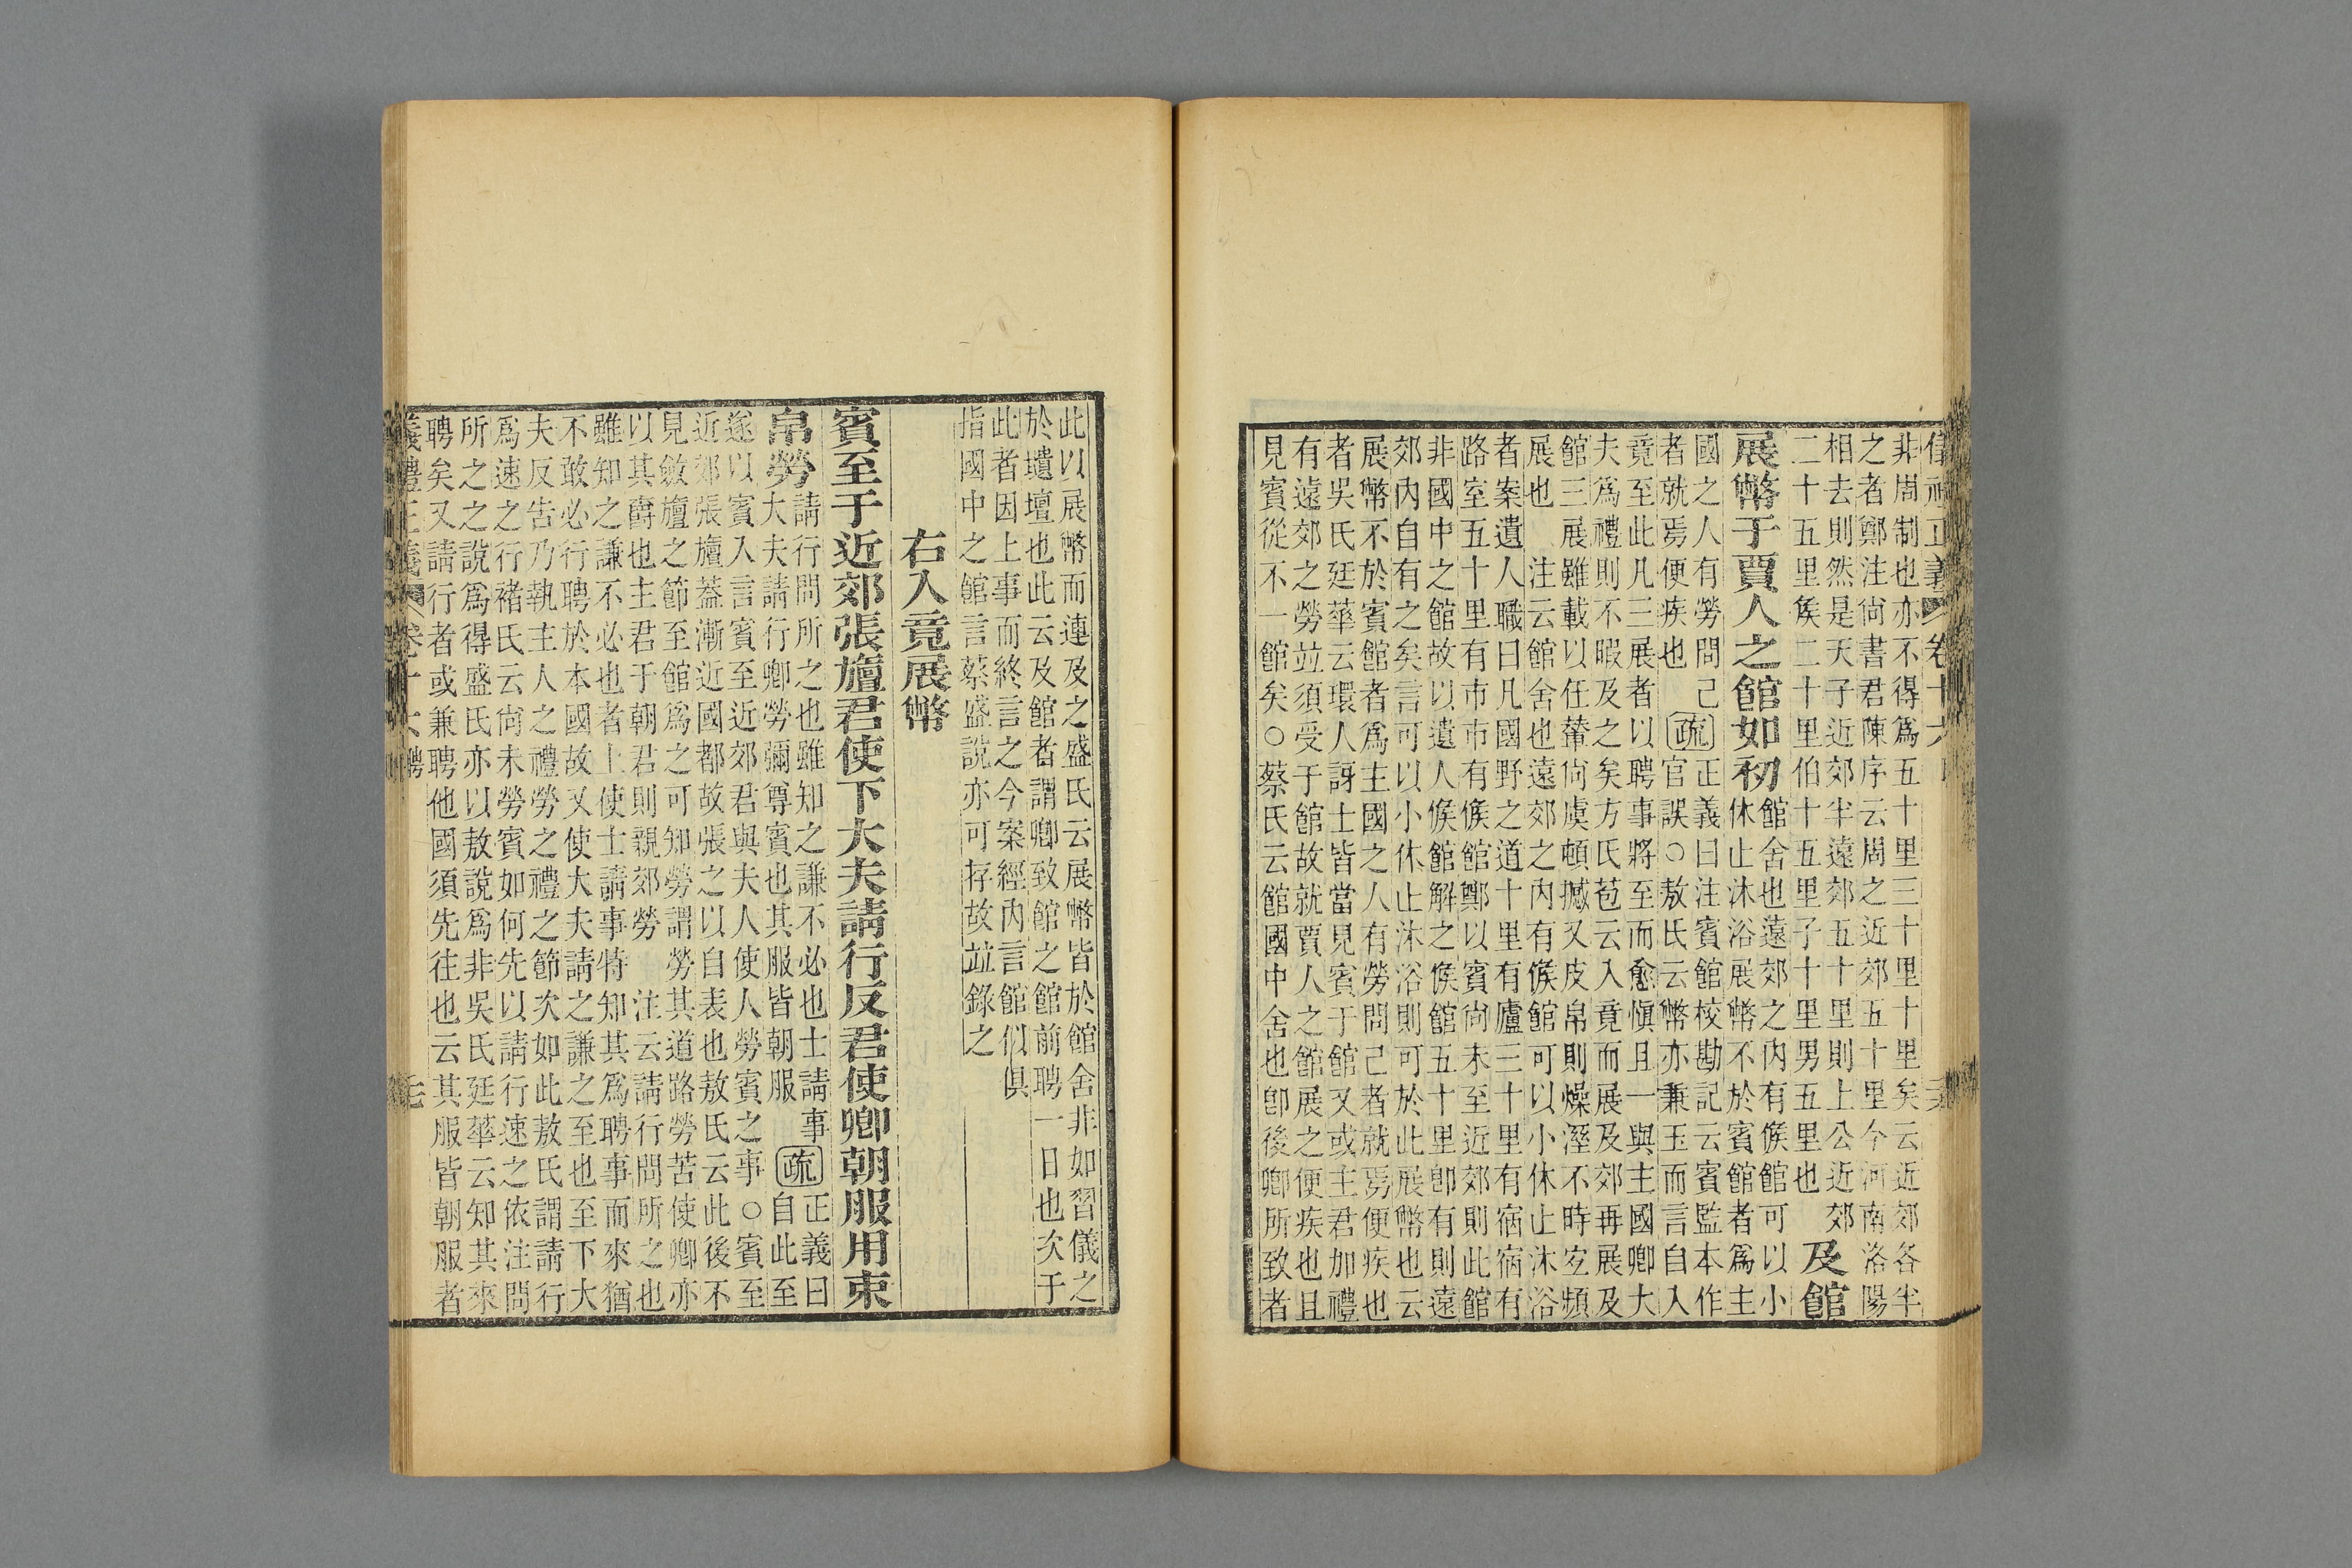 儀禮正義 卷十六
非周制也亦不得爲五十里三十里十里矣云近郊各半
之者鄭注尙書君陳序云周之近郊五十里今河南洛陽
相去則然是天子近郊半遠郊五十里則上公近郊
二十五里矦二十里伯十五里子十里男五里也
及館
展幣于賈人之館如初
館舍也遠郊之內有候館可以小
休止沐浴展幣不於賓館者爲主
國之人有勞問己
者就焉便疾也
疏
正義曰注賓館校勘記云賓監本作
官誤○敖氏云幣亦兼玉而言自入
竟至此凡三展者以聘事將至而愈愼且一與主國卿大
夫爲禮則不暇及之矣方氏苞云入竟而展及郊再展及
館三展雖載以任輦尙虞頓撼又皮帛則燥溼不時宐頻
展也　注云館舍也遠郊之內有候館可以小休止沐浴
者案遺人職曰凡國野之道十里有廬三十里有宿宿有
路室五十里有市市有候館鄭以賓尙未至近郊則此館
非國中之館故以遺人候館解之候館五十里卽有則遠
郊內自有之矣言可以小休止沐浴則可於此展幣也云
展幣不於賓館者爲主國之人有勞問己者就焉便疾也
者吳氏廷華云環人訝士皆當見賓于館又或主君加禮
有遠郊之勞竝須受于館故就賈人之館展之便疾也且
見賓從不一館矣○蔡氏云館國中舍也卽後卿所致者
此以展幣而連及之盛氏云展幣皆於館舍非如習儀之
於壝壇也此云及館者謂卿致館之館前聘一日也次于
此者因上事而終言之今案經內言館似俱
指國中之館言蔡盛說亦可存故竝錄之
右入竟展幣
賓至于近郊張旜君使下大夫請行反君使卿朝服用束
帛勞
請行問所之也雖知之謙不必也士請事
大夫請行卿勞彌尊賓也其服皆朝服
疏
正義曰
自此至
遂以賓入言賓至近郊君與夫人使人勞賓之事○賓至
近郊張旜蓋漸近國都故張之以自表也敖氏云此後不
見斂旜之節至館爲之可知勞謂勞其道路勞苦使卿亦
以其爵也主君于朝君則親郊勞　注云請行問所之也
雖知之謙不必也者上使士請事特知其爲聘事而來猶
不敢必行聘於本國故又使大夫請之謙之至也至下大
夫反告乃執主人之禮勞之禮之節次如此敖氏謂請行
爲速之行褚氏云尙未勞賓如何先以請行速之依注問
所之之說爲得盛氏亦以敖說爲非吳氏廷華云知其來
聘矣又請行者或兼聘他國須先往也云其服皆朝服者
儀禮正義 卷十六 聘